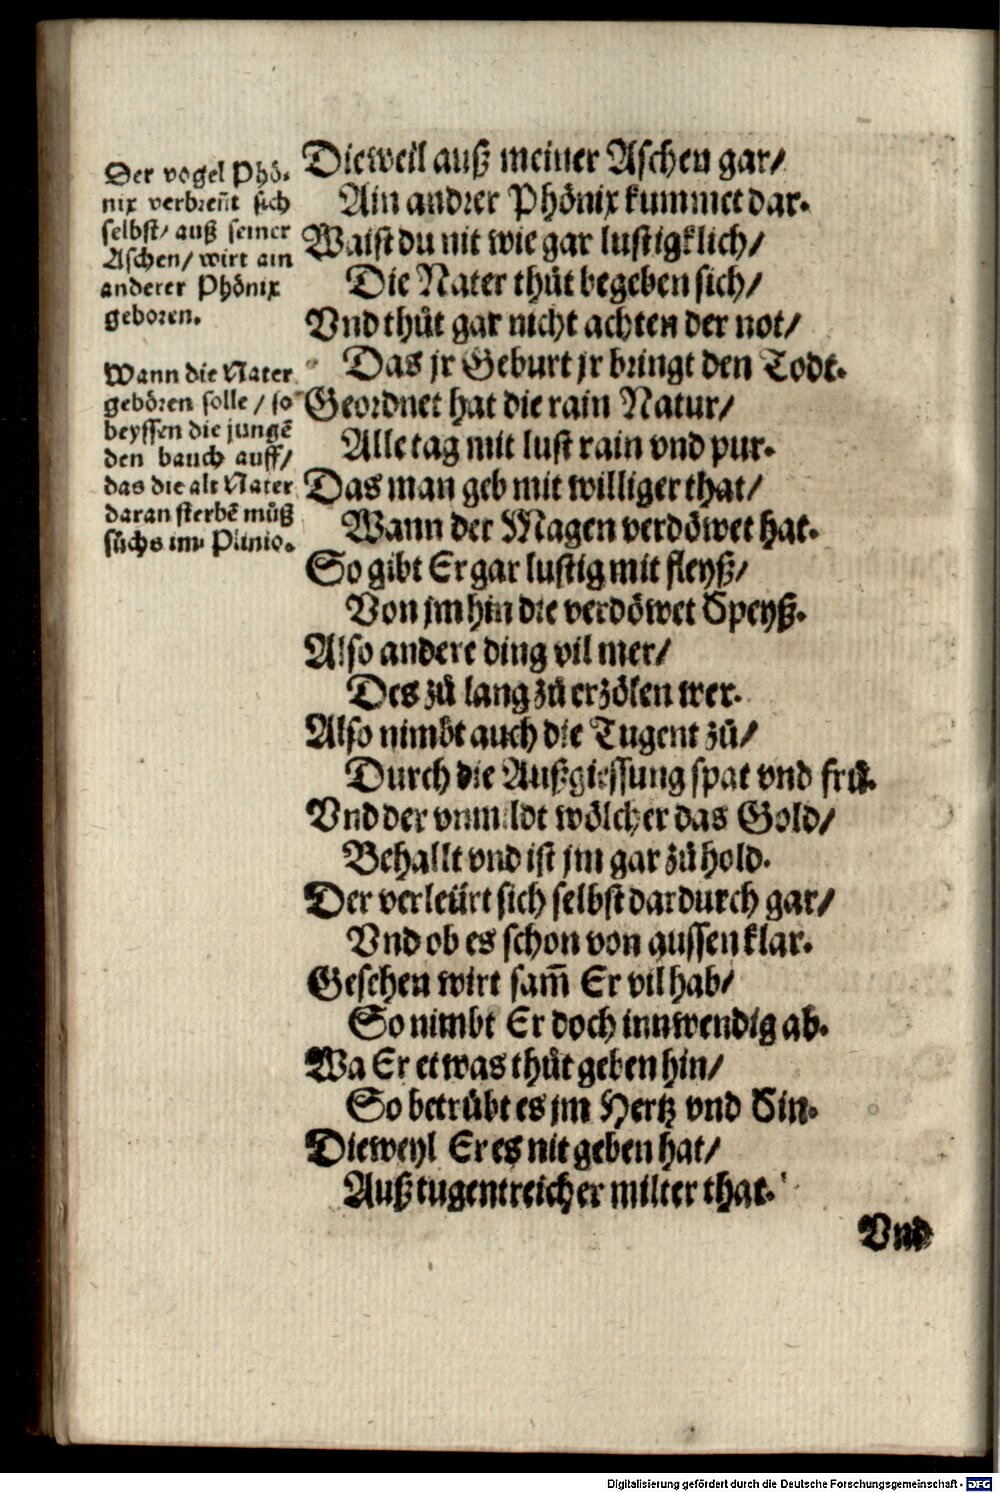 Der vogel Phö-
nix verbreñt sich
selbst/ auß seiner
Aschen/ wirt ain
anderer Phönix
geboren.
Wann die Nater
gebören solle / so
beyssen die jungē
den bauch auff/
das die alt Nater
daran sterbē můß
sůchs im Plinio.
Dieweil auß meiner Aschen gar/
Ain andrer Phönix kummet dar.
Waist du nit wie gar lustigklich/
Die Nater thůt begeben sich/
Vnd thůt gar nicht achten der not/
Das jr Geburt jr bringt den Todt.
Geordnet hat die rain Natur/
Alle tag mit lust rain vnd pur.
Das man geb mit williger that/
Wann der Magen verdöwet hat.
So gibt Er gar lustig mit fleyß/
Von jm hin die verdöwet Speyß.
Also andere ding vil mer/
Des zů lang zů erzölen wer.
Also nimbt auch die Tugent zů/
Durch die Außgiessung spat vnd frů.
Vnd der vnmildt wölcher das Gold/
Behallt vnd ist jm gar zů hold.
Der verleürt sich selbst dardurch gar/
Vnd ob es schon von aussen klar.
Gesehen wirt sam̃ Er vil hab/
So nimbt Er doch innwendig ab.
Wa Er etwas thůt geben hin/
So betrübt es jm Hertz vnd Sin.
Dieweyl Er es nit geben hat/
Auß tugentreicher milter that.
Vnd
Digitalisierung gefördert durch die Deutsche Forschungsgemeinschaft - DFG